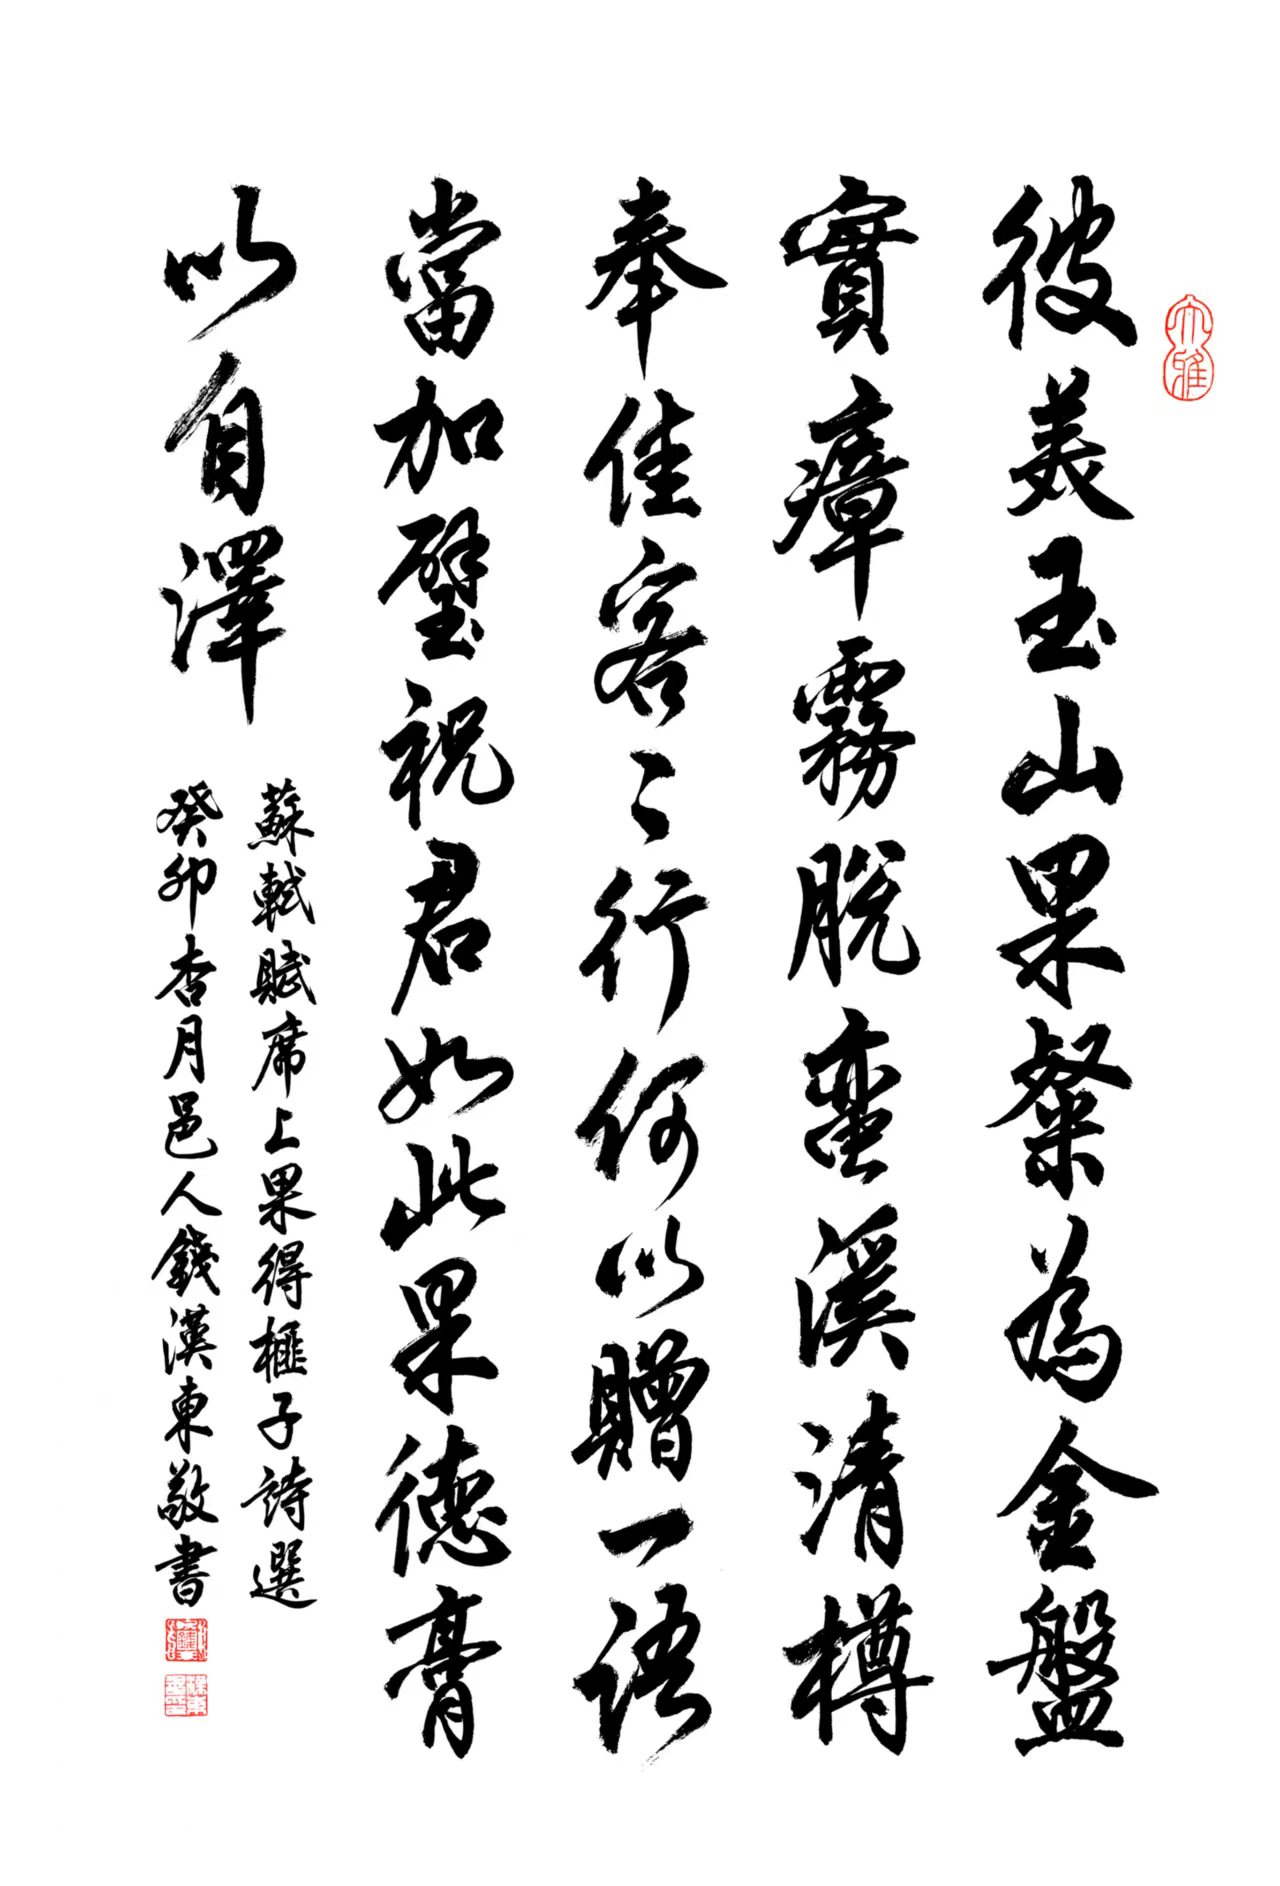 大雅
彼美玉山果粲為金盤
實瘴霧脫蠻溪清樽
奉佳客〻行何以贈一語
當加璧祝君如此果德膏
以自澤
蘇軾賦席上果得榧子詩選
癸卯杏月邑人錢漢東敬書